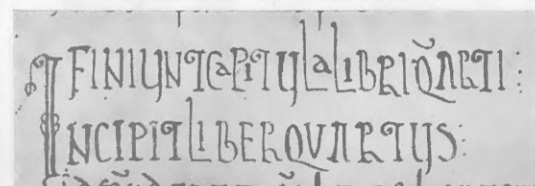 FINIUNT CAPITULA LIBRI QUARTI:
INCIPIT LIBER QVARTUS: